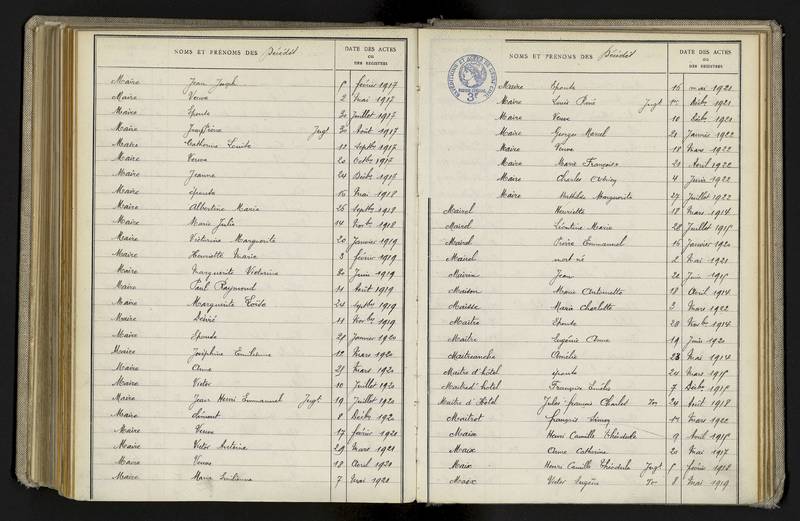 NOMS ET PRÉNOMS DES Décédés DATE DES ACTES OU DES REGISTRES
Maire Jean Joseph 5 février 1917
Maire Veuve 2 Mai 1917
Maire Épouse 30 Juillet 1917
Maire Jugt 30 Août 1917
Maire Catherine Louise 12 Septbre 1917
Maire Veuve 20 Octbre 1917
Maire Jeanne 24 Décbre 1917
Maire épouse 15 Mai 1918
Maire Albertine Marie 25 Septbre 1918
Maire Marie Julie 14 Novbre 1918
Maire Victorine Marguerite 20 Janvier 1919
Maire Henriette Marie 3 février 1919
Maire Marguerite Victorine 30 Juin 1919
Maire Paul Raymond 11 Août 1919
Maire Marguerite 24 Septbre 1919
Maire Désiré 11 Novbre 1919
Maire Épouse 21 Janvier 1920
Maire Joséphine Emilienne 12 Mars 1920
Maire Anne 25 Mars 1920
Maire Victor 10 Juillet 1920
Maire Jean Henri Emmanuel Jugt 19 Juillet 1920
Maire Clément 8 Décbre 1920
Maire Veuve 17 février 1921
Maire Victor Antoine 29 Mars 1921
Maire Veuve 18 Avril 1921
Maire Marie Emilienne 7 Mai 1921
NOMS ET PRÉNOMS DES Décédés DATE DES ACTES OU DES REGISTRES
Maire Épouse 16 mai 1921
Maire Louis René Jugt Décbre 1921
Maire Veuve 10 Décbre 1921
Maire Georges Marcel 21 Janvier 1922
Maire Veuve 18 Mars 1922
Maire Marie Françoise 21 Avril 1922
Maire Charles 4 Juin 1922
Maire Mathilde Marguerite 27 Juillet 1922
Mairel Henriette 18 Mars 1914
Mairel Léontine Marie 28 Juillet 1915
Mairel Pierre Emmanuel 16 Janvier 1920
Mairel mort né 2 Mai 1921
Jean 20 Juin 1915
Maison Marie Antoinette 18 Avril 1914
Maisse Marie Charlotte 3 Mars 1922
Maitre Épouse 28 Novbre 1914
Maitre Eugénie Anne 19 Juin 1920
Maitremanche Amélie 23 Mai 1914
Maitre d'hôtel épouse 24 Mars 1915
Maitre d'hotel François Emile 7 Décbre 1915
Maitre d'Hôtel Jules françois Charles Ton 24 Août 1918
Maitrot françois Mars 1922
Maix Henri Camille Théodule 9 Avril 1915
Maix Anne Catherine 20 Mai 1917
Maix Henri Camille Théodule Jugt 5 février 1918
Maix Victor Eugène Ton 8 Mai 1919